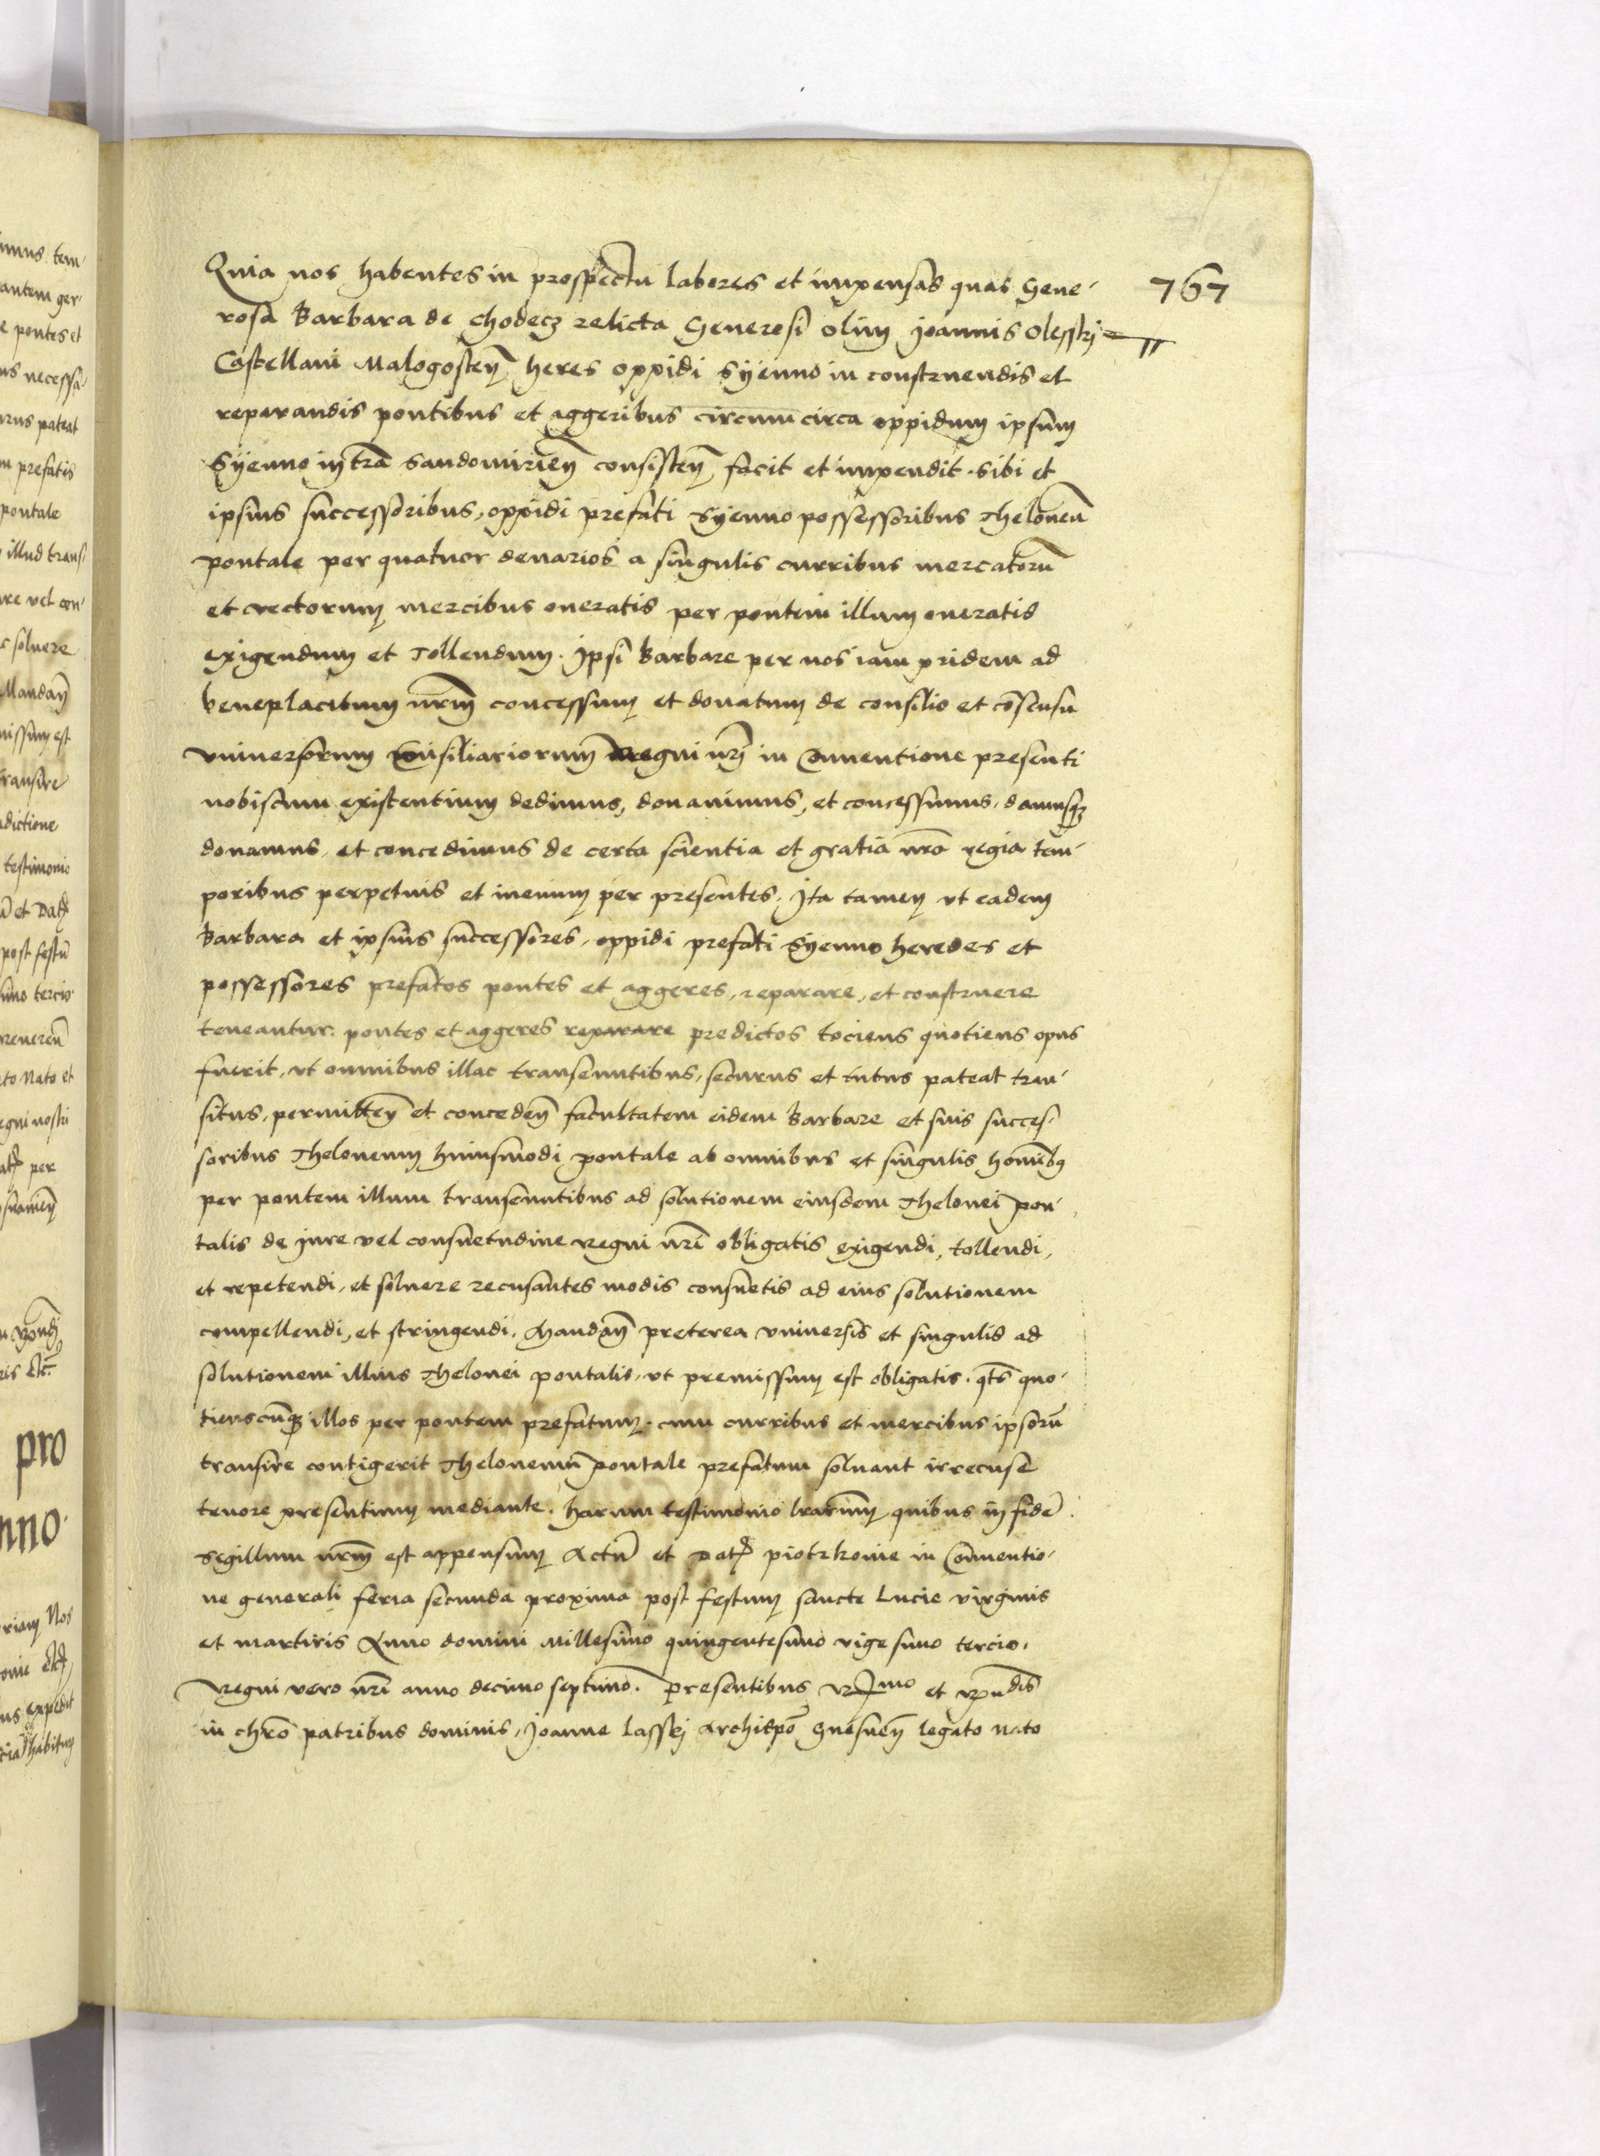 Quia nos habentes in prospectu labores et impensas quas Gene-
rosa Barbara de Chodecz relicta Generosi olim Joannis Olesskj
Castellani Malogosteñ heres oppidi Syenno in construendis et
reparandis pontibus et aggeribus circumcirca oppidum ipsum
Syenno in tra Sandomirieñ consisteñ facit et impendit. sibi et
ipsius successoribus, oppidi prefati Syenno possessoribus Theloneū
pontale per quatuor denarios a singulis curribus mercatorū
et vectorum mercibus oneratis per pontem illum oneratis
exigendum et Tollendum. Ipsi Barbare per nos iam pridem ad
beneplacitum nrm̄ concessum et donatum de consilio et cōsensu
vniuersorum consiliariorum Regni nrī in Conuentione presenti
nobiscum existentium dedimus, donauimus, et concessimus. damusq₃
donamus, et concedimus de certa scientia et gratia nrā regia tem-
poribus perpetuis et in euum per presentes. Ita tamen vt eadem
Barbara et ipsius successores, oppidi prefati Syenno heredes et
possessores prefatos pontes et aggeres, reparare, et construere
teneantur. pontes et aggeres reparare predictos tociens quotiens opus
fuerit, vt omnibus illac transeuntibus, securus et tutus pateat tran-
situs, permitteñ et concedeñ facultatem eidem Barbare et suis succes-
soribus Theloneum huiusmodi pontale ab omnibus et singulis hominib₉
per pontem illum transeuntibus ad solutionem eiusdem Thelonei pon-
talis de jure vel consuetudine Regni nrī obligatis exigendi, tollendi,
et repetendi, et soluere recusantes modis consuetis ad eius solutionem
compellendi, et stringendi. Mandañ preterea vniuersis et singulis ad
solutionem illius Thelonei pontalis, vt premissum est obligatis. qts̄ quo-
tienscunq₃ illos per pontem prefatum. cum curribus et mercibus ipsorū
transire contigerit Theloneum pontale prefatum soluant irrecuse
tenore presentium mediante. Harum testimonio lrarum quibus in fidē
Sigillum nrm̄ est appensum Actū et Dat₃ Piotrkouie in Conuentio-
ne generali feria secunda proxima post festum sancte Lucie virginis
et martiris Anno domini Millesimo quingentesimo vigesimo tercio.
Regni vero nrī anno decimo septimo. Presentibus Rmo et Rndis
in chrō patribus dominis, Joanne Lasskj Archiepō Gnesneñ legato nato
767
pro
nno.